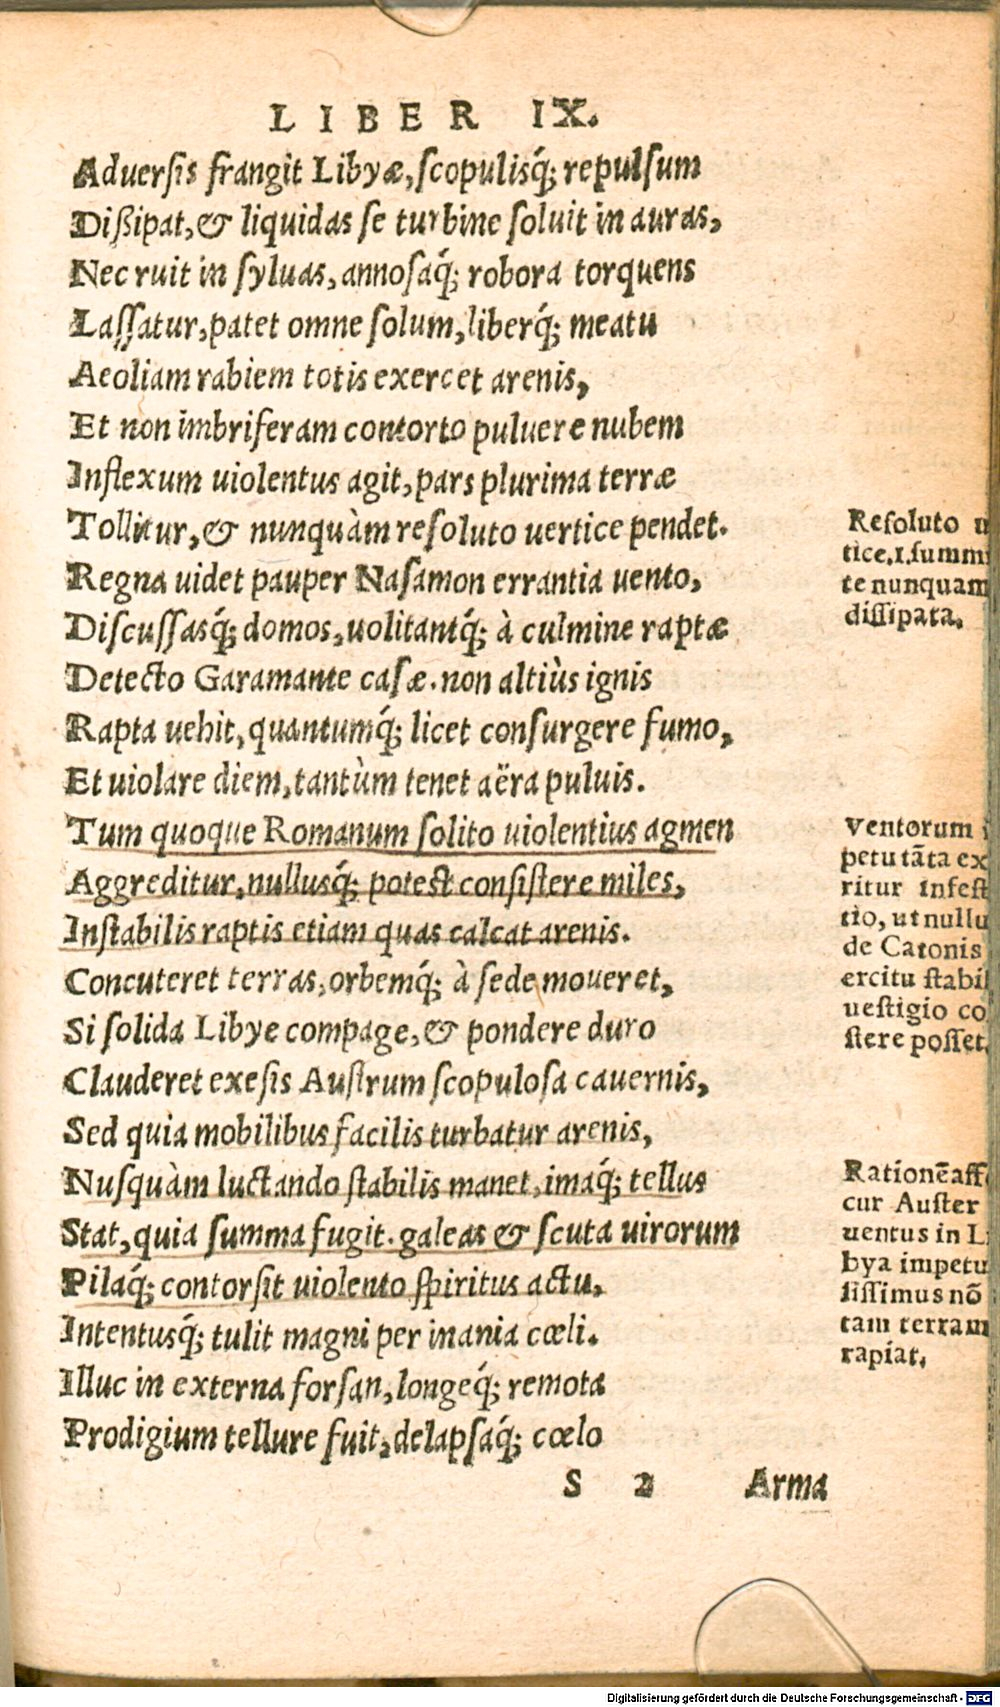 LIBER IX.
Aduersis frangit Libyæ, scopulisq́; repulsum
Dißipat, & liquidas se turbine soluit in auras,
Nec ruit in syluas, annosaq́; robora torquens
Lassatur, patet omne solum, liberq́; meatu
Aeoliam rabiem totis exercet arenis,
Et non imbriferam contorto puluere nubem
Inflexum uiolentus agit, pars plurima terræ
Tollitur, & nunquàm resoluto uertice pendet.
Regna uidet pauper Nasamon errantia uento,
Discussasq́; domos, uolitantq́; à culmine raptæ
Detecto Garamante casæ. non altiùs ignis
Rapta uehit, quantumq́; licet consurgere fumo,
Et uiolare diem, tantùm tenet aëra puluis.
Tum quoque Romanum solito uiolentius agmen
Aggreditur, nullusq́; potest consistere miles,
Instabilis raptis etiam quas calcat arenis.
Concuteret terras, orbemq́; à sede moueret,
Si solida Libye compage, & pondere duro
Clauderet exesis Austrum scopulosa cauernis,
Sed quia mobilibus facilis turbatur arenis,
Nusquàm luctando stabilis manet, imaq́; tellus
Stat, quia summa fugit. galeas & scuta uirorum
Pilaq́; contorsit uiolento spiritus actu,
Intentusq́; tulit magni per inania cœli.
Illuc in externa forsan, longeq́; remota
Prodigium tellure fuit, delapsaq́; cœlo
S 2 Arma
Resoluto u
tice.i.summi
te nunquam
dissipata.
Ventorum i
petu tãta ex
ritur infest
tio, ut nullu
de Catonis
ercitu stabil
uestigio co
stere posset.
Rationẽ aff
cur Auster
uentus in Li
bya impetu
sissimus nõ
tam terram
rapiat.
Digitalisierung gefördert durch die Deutsche Forschungsgemeinschaft - DFG